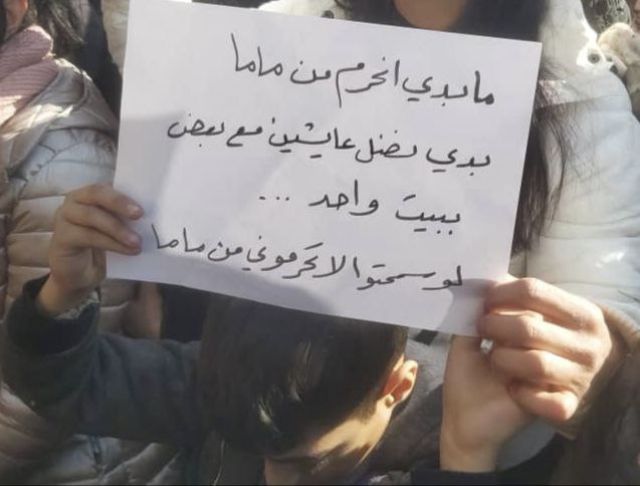 ما بدي انحرم من ماما
بدي نضل عايشين مع بعض
ببيت واحد ...
لو سمحتوا لا تحرموني من ماما